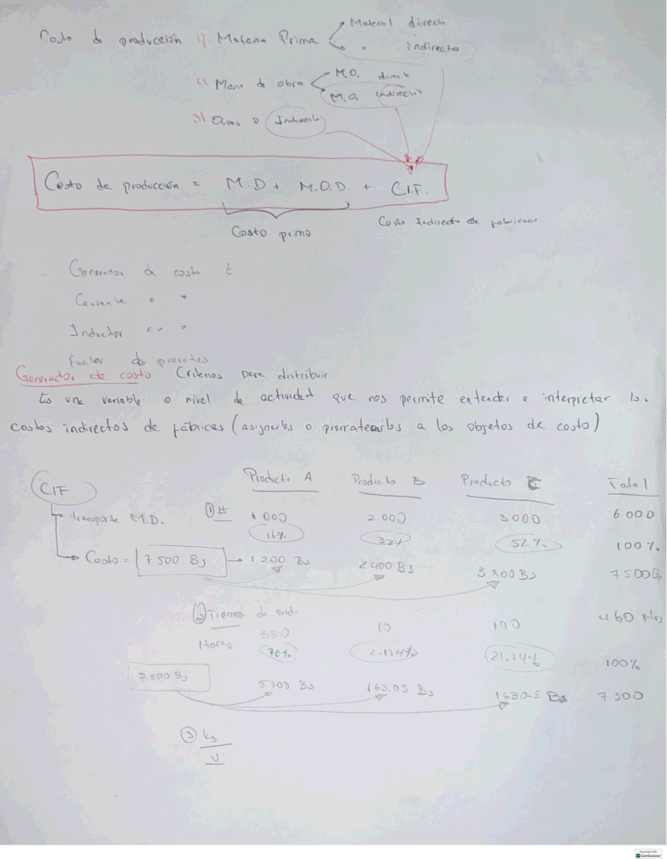 Costo de producción 1) Materia Prima
Material directo
" indirecto
2) Mano de obra
M.O. directa
M.O. indirecta
3) Otros o Indirecto
Costo de producción = M.D + M.O.D + C.I.F.
Costo primo
Costo Indirecto de fabricación
Generador de costo
Causante " "
Inductor " "
factor de prorrateo
Generador de costo Criterios para distribuir
Es una variable o nivel de actividad que nos permite entender e interpretar los
costos indirectos de fábricas (asignarlos o prorratearlos a los objetos de costo)
Producto A Producto B Producto C Total
CIF
transporte M.D. ① # 1000 2000 3000 6000
16% 32% 52% 100%
Costo = 7500 Bs 1200 Bs 2400 Bs 3900 Bs 7500B
② Tiempo de prod.
Horas 350 10 100 460 Hrs
76% 21.74% 100%
7500 Bs
5700 Bs 163.05 Bs 1630.5 Bs 7500
③ kg
V
CamScanner